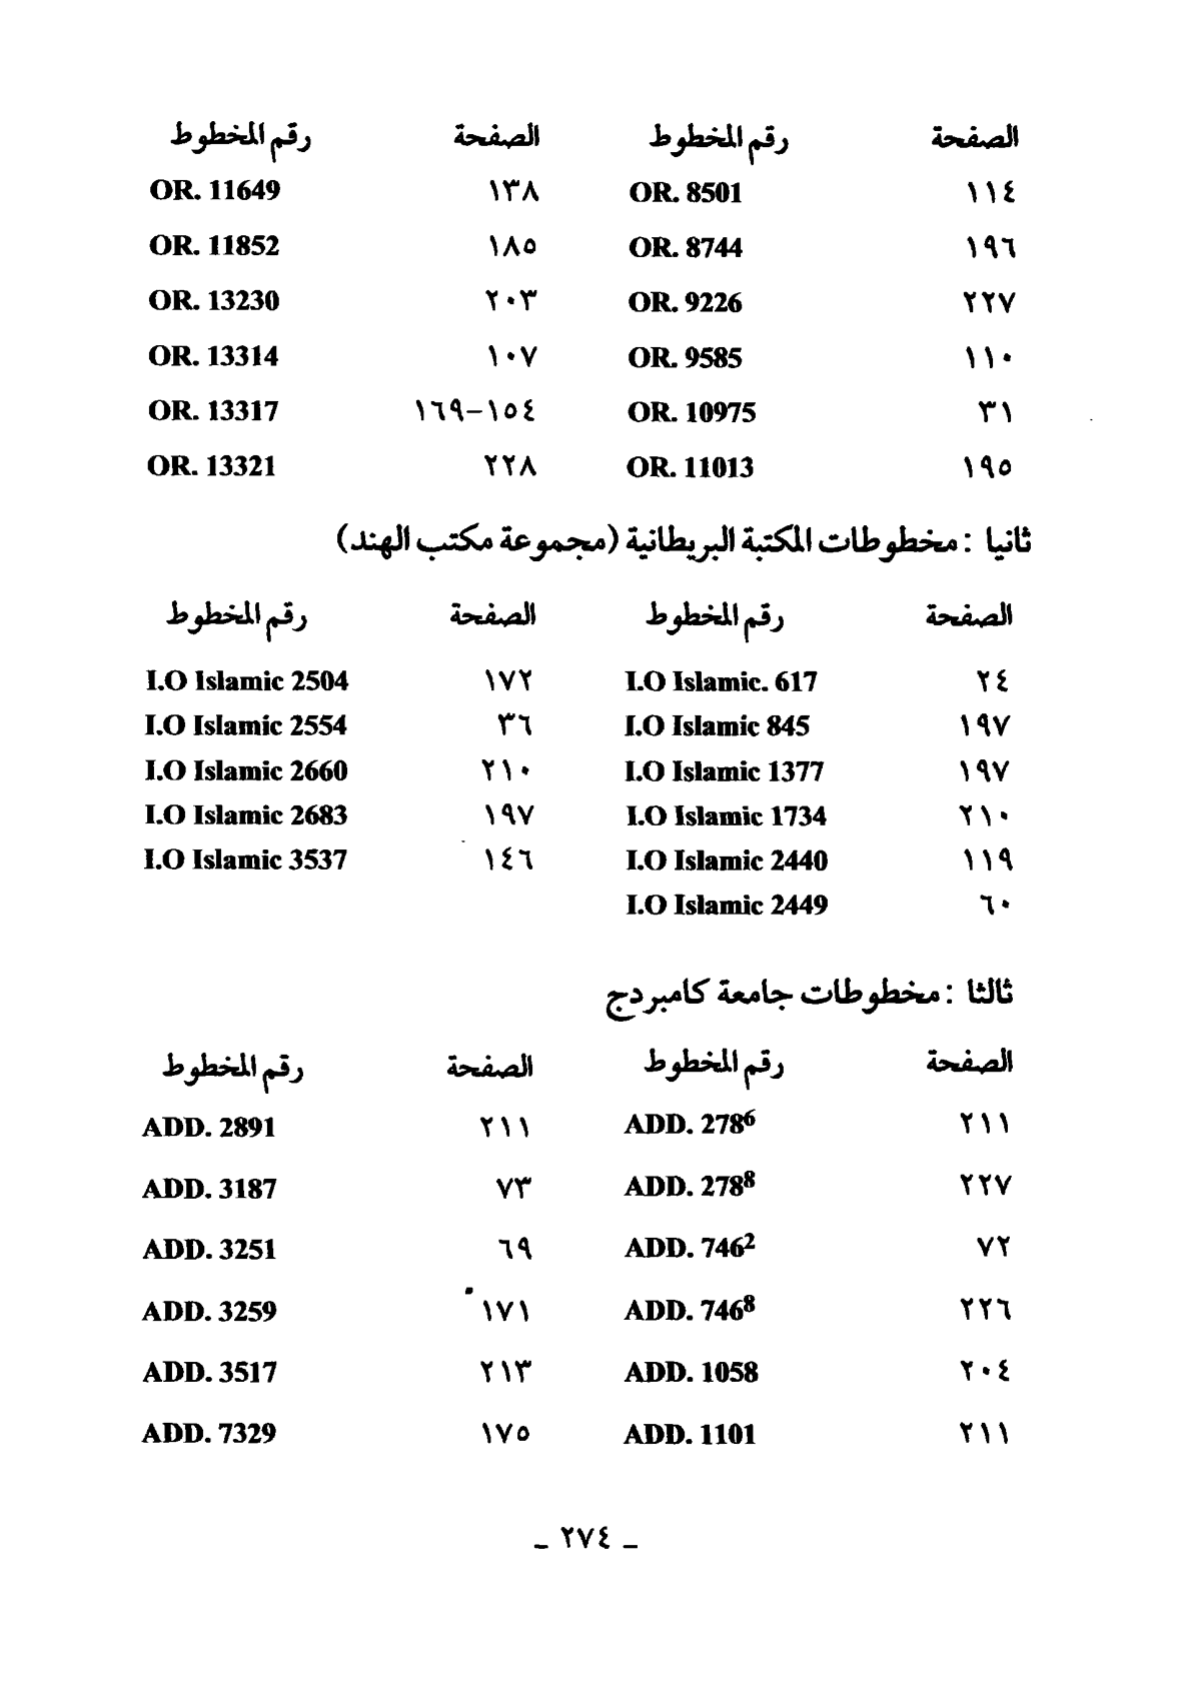 الصفحة رقم المخطوط الصفحة رقم المخطوط
١١٤ OR. 8501 ١٣٨ OR. 11649
١٩٦ OR. 8744 ١٨٥ OR. 11852
٢٢٧ OR. 9226 ٢٠٣ OR. 13230
١١٠ OR. 9585 ١٠٧ OR. 13314
٣١ OR. 10975 ١٥٤–١٦٩ OR. 13317
١٩٥ OR. 11013 ٢٢٨ OR. 13321
ثانيا : مخطوطات المكتبة البريطانية (مجموعة مكتب الهند)
الصفحة رقم المخطوط الصفحة رقم المخطوط
٢٤ I.O Islamic. 617 ١٧٢ I.O Islamic 2504
١٩٧ I.O Islamic 845 ٣٦ I.O Islamic 2554
١٩٧ I.O Islamic 1377 ٢١٠ I.O Islamic 2660
٢١٠ I.O Islamic 1734 ١٩٧ I.O Islamic 2683
١١٩ I.O Islamic 2440 ١٤٦ I.O Islamic 3537
٦٠ I.O Islamic 2449
ثالثا : مخطوطات جامعة كامبردج
الصفحة رقم المخطوط الصفحة رقم المخطوط
٢١١ ADD. 278⁶ ٢١١ ADD. 2891
٢٢٧ ADD. 278⁸ ٧٣ ADD. 3187
٧٢ ADD. 746² ٦٩ ADD. 3251
٢٢٦ ADD. 746⁸ ١٧١ ADD. 3259
٢٠٤ ADD. 1058 ٢١٣ ADD. 3517
٢١١ ADD. 1101 ١٧٥ ADD. 7329
ـ ٢٧٤ ـ